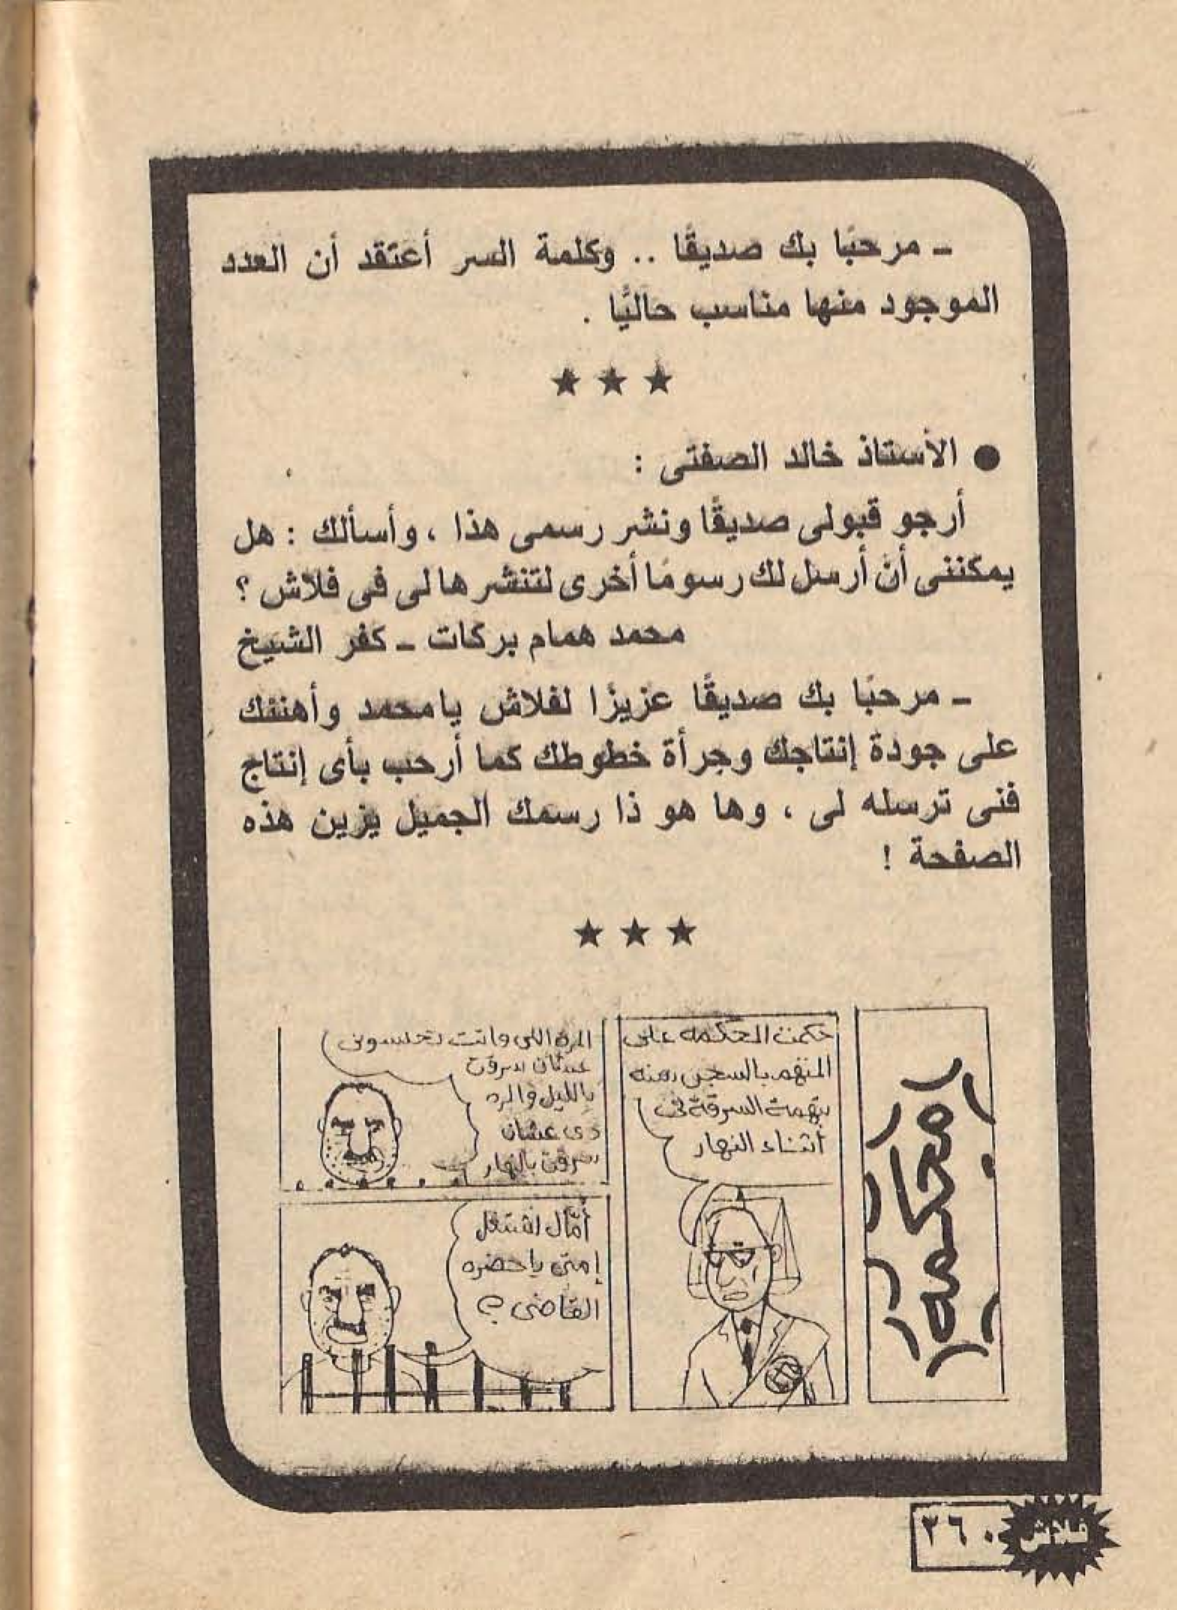 ـ مرحبًا بك صديقًا .. وكلمة السر أعتقد أن العدد
الموجود منها مناسب حاليًا .
★ ★ ★
● الأستاذ خالد الصفتى :
أرجو قبولى صديقًا ونشر رسمى هذا ، وأسألك : هل
يمكننى أن أرسل لك رسومًا أخرى لتنشرها لى فى فلاش ؟
محمد همام بركات ـ كفر الشيخ
ـ مرحبًا بك صديقًا عزيزًا لفلاش يا محمد وأهنئك
على جودة إنتاجك وجرأة خطوطك كما أرحب بأى إنتاج
فنى ترسله لى ، وها هو ذا رسمك الجميل يزين هذه
الصفحة !
★ ★ ★
محكمه
حكمت المحكمه على
المتهم بالسجن سنه
بتهمة السرقة فى
أثناء النهار
المره اللى فاتت تحبسونى
عشان سرقت
بالليل والمره
دى عشان
سرقت بالنهار
أمال اشتغل
إمتى يا حضره
القاضى ؟
٣٦٠
فلاش